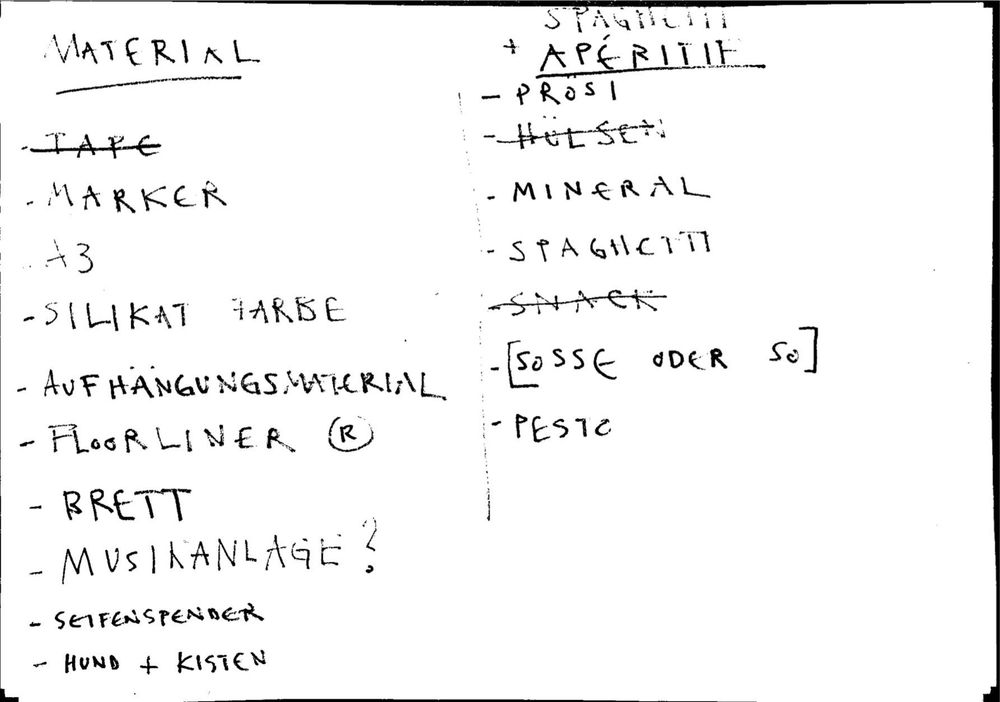 MATERIAL
- TAPE
- MARKER
- A3
- SILIKAT FARBE
- AUFHÄNGUNGSMATERIAL
- FLOORLINER ®
- BRETT
- MUSIKANLAGE?
- SEIFENSPENDER
- HUND + KISTEN
SPAGHETTI
+ APÉRITIF
- PROSI
- HÜLSEN
- MINERAL
- SPAGHETTI
- SNACK
- [SOSSE ODER SO]
- PESTO